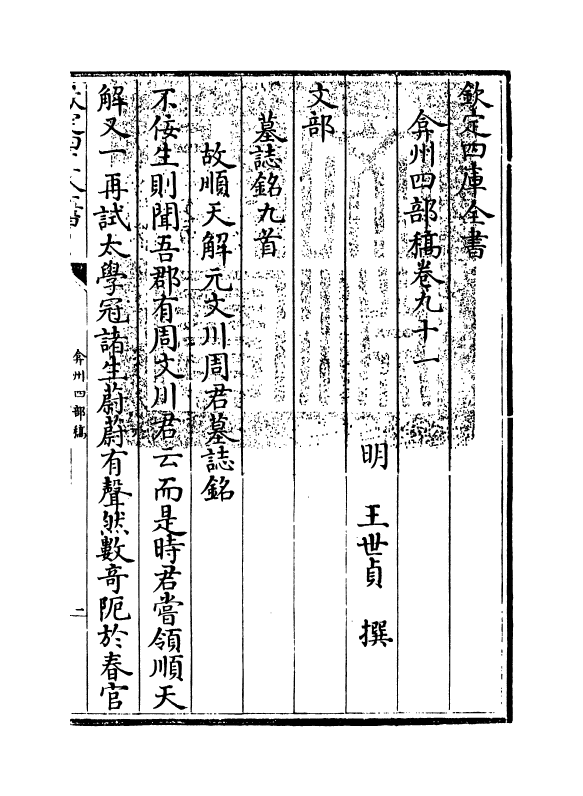 欽定四庫全書
弇州四部稿卷九十一
明 王世貞 撰
文部
墓誌銘九首
故順天解元文川周君墓誌銘
不佞生則聞吾郡有周文川君云而是時君嘗領順天
解又一再試太學冠諸生蔚蔚有聲然數奇阨於春官
弇州四部稿